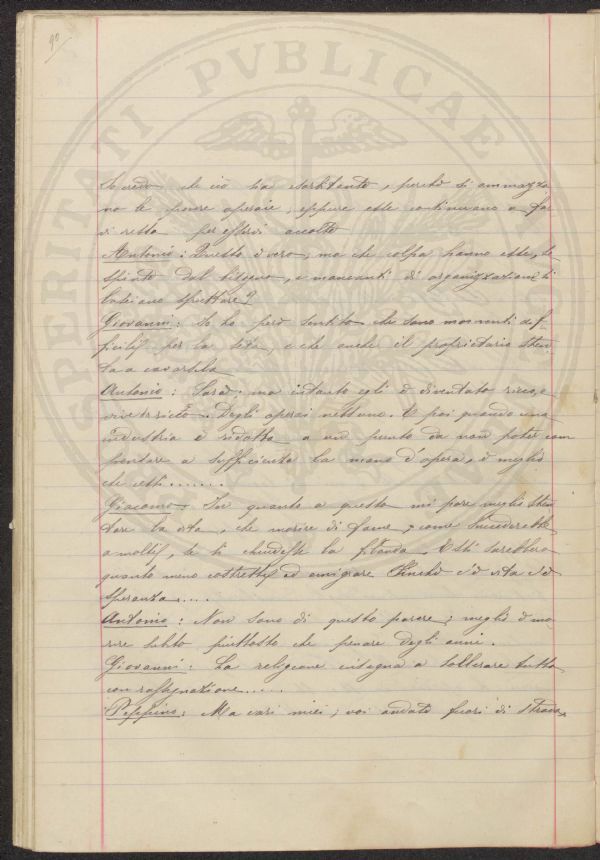 90
PROSPERITATI PVBLICAE
Io credo che ciò sia esorbitante, perchè si ammazza
no le povere operaie, eppure esse continuano a far
di resta per esservi accolte
Antonio: Questo è vero, ma che colpa hanno esse, se
spinte dal bisogno, e mancanti di organizzazione si
lasciano sfruttare?
Giovanni: Io ho però sentito che sono momenti dif=
ficilij per la seta, e che anche il proprietario sten
ta a cavarsela
Antonio: Sarà; ma intanto egli è diventato ricco, e
Degli operai nessuno. E poi quando una
industria è ridotta a un punto da non poter com
pensare a sufficienza la mano d'opera, è meglio
che cessi.......
Giacomo: In quanto a questo mi pare meglio sten
tare la vita, che morire di fame, come succederebbe
a moltij, se si chiudesse la filanda. Essi sarebbero
quanto meno costrettij ad emigrare Finchè c'è vita c'è
speranza.....
Antonio: Non sono di questo parere; meglio è mo=
rire subito piuttosto che penare degli anni.
Giovanni: La religione insegna a sollerare tutto
con rassegnazione.....
Peppino: Ma cari miei, voi andate fuori di strada,